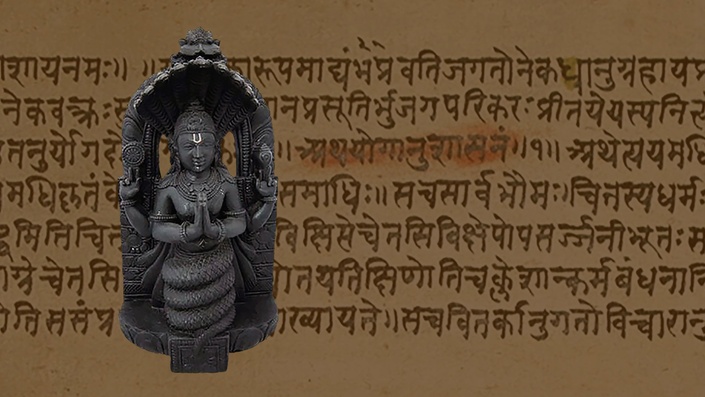 शायनमः॥ ॥ रूपमाद्यंप्रभवतिजगतोनेकधानुग्रहायप्र
नेकवक्त्रः नप्रसूतिर्भुजगपरिकरःप्रीतयेयस्यनित्यं
तनुर्योग ॥अथयोगानुशासनं॥१॥अथेत्ययमधि
मधिकृतंवे समाधिः॥सचसार्वभौमःचित्तस्यधर्मः
मितिचि सिचेतसिविक्षेपोपसर्ज्जनीभूतःस
ग्रेचेतसि तयतिक्षिणोतिचक्लेशान्कर्मबंधनानि
तिससंप्र ख्यायते॥सचवितर्कानुगतोविचारानु